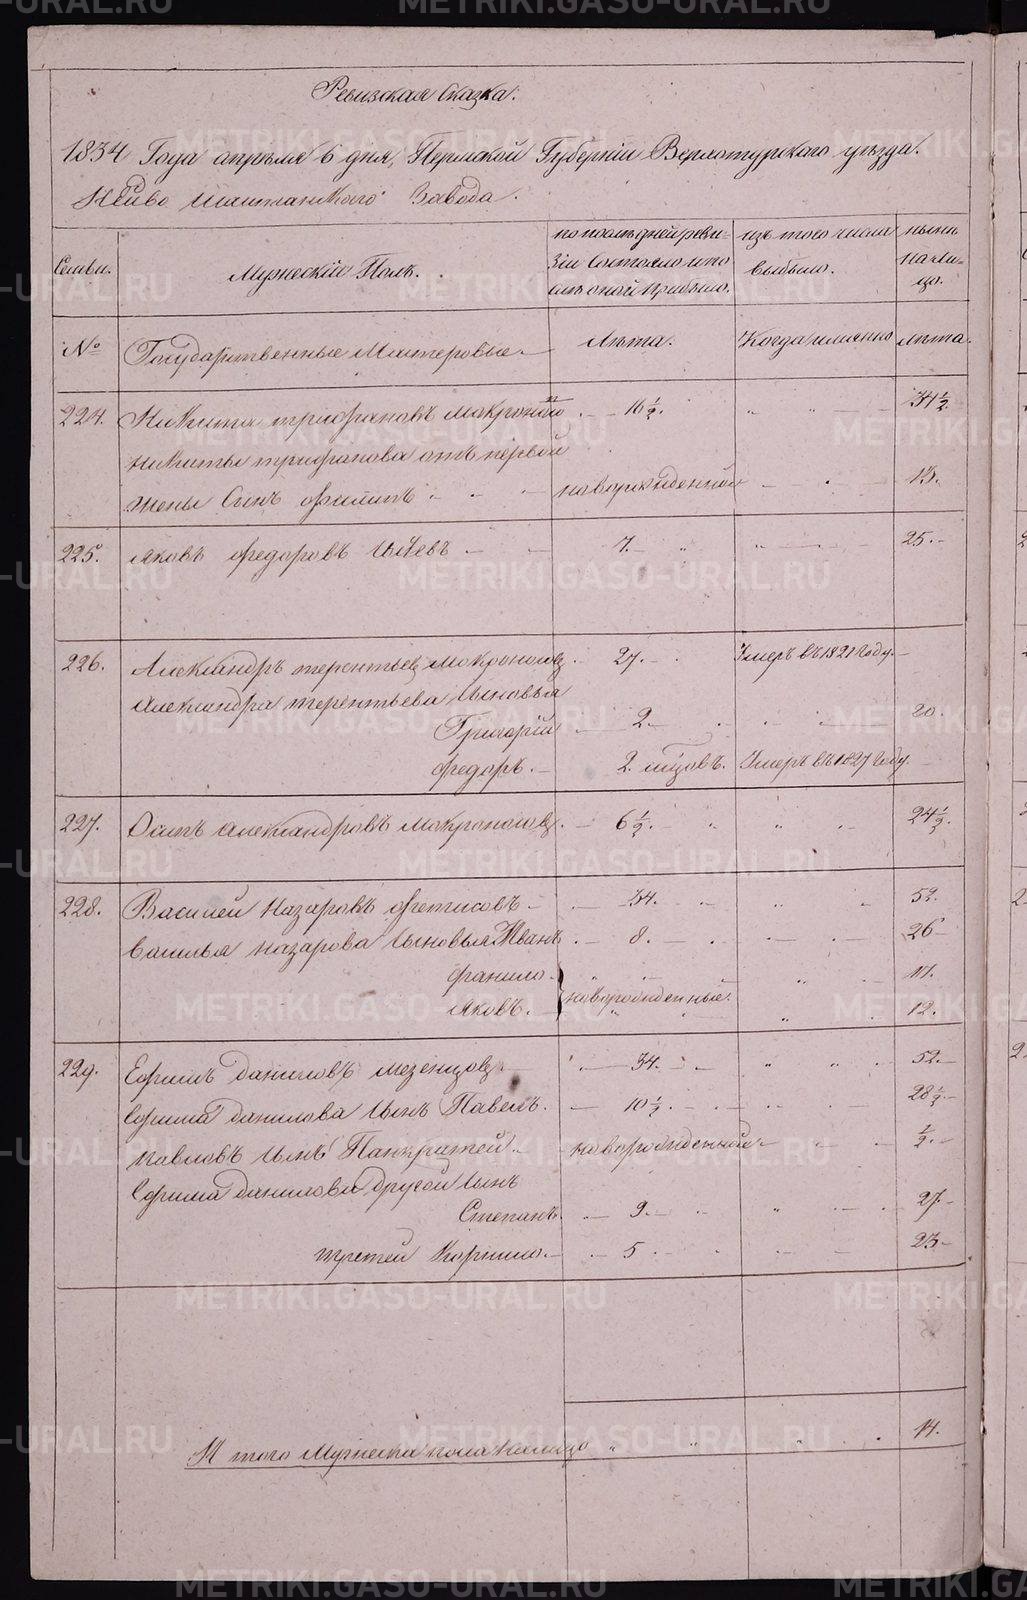 Ревизская Сказка.
1834 Года апреля 6 дня, Пермской Губернiи Верхотурскаго уезда.
Нейво Шайтанскаго Завода.
Семьи.
Мужескiй Полъ.
по последней реви-
зiи состояло и по
сле оной прибыло.
изъ того числа
выбыло.
ныне
на ли-
цо.
№
Государственные Мастеровые.
Лета.
Когда именно
лета.
224. Никита трифановъ Мокроносов 16 1/2. 34 1/2
Никиты трифанова отъ первой
жены Сынъ Филипъ новорожденной 13.
225. Яковъ федоровъ 7. 25.
226. Александръ терентьевъ Мокроносовъ 27. Умеръ въ 1821 Году.
Александра терентьева Сыновья
Григорiй 2 20.
Федоръ. 2. Умеръ въ 1827 Году
227. Осипъ Александровъ Мокроносовъ. 6 1/2. 24 1/2.
228. Василей Назаровъ Фетисовъ 34. 52.
Василья Назарова Сыновья Иванъ 8. 26
Данило 17.
Яковъ. новорожденные. 12.
229. Ефимъ Даниловъ Мезенцовъ 34. 52.
Ефима Данилова Сынъ Павелъ. 10 1/2. 28 1/2.
Павловъ Сынъ Панкратей новорожденной 1/2.
Ефима Данилова другой Сынъ
Степанъ. 9. 27.
третей Корнило. 5 23
И того Мужеска пола налицо 14.
METRIKI.GASO-URAL.RU